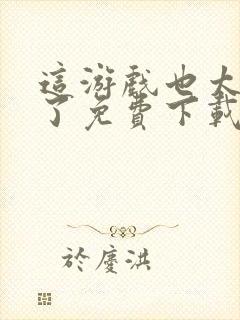 這游戲也太
了免費下載
於慶洪